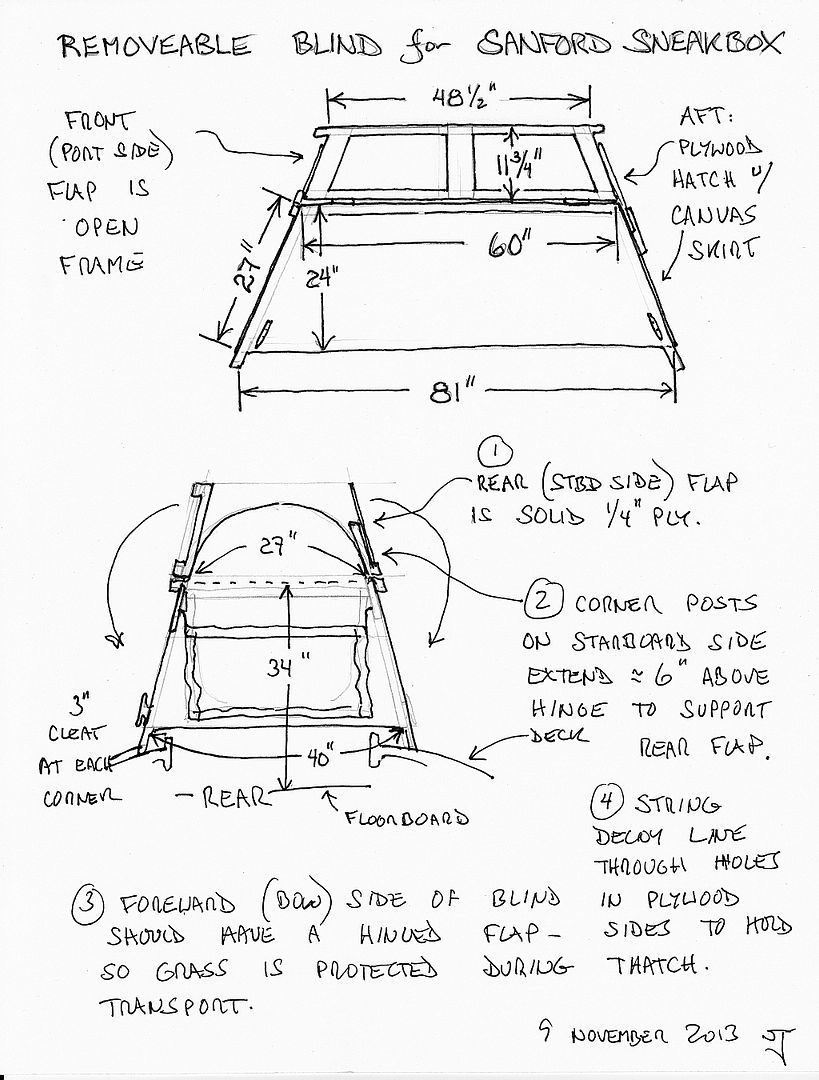 REMOVEABLE BLIND for SANFORD SNEAKBOX
48½"
FRONT
(PORT SIDE)
FLAP IS
OPEN
FRAME
AFT:
PLYWOOD
HATCH w/
CANVAS
SKIRT
11¾"
27"
24"
60"
81"
①
REAR (STBD SIDE) FLAP
IS SOLID ¼" PLY.
27"
② CORNER POSTS
ON STARBOARD SIDE
EXTEND ≈ 6" ABOVE
HINGE TO SUPPORT
REAR FLAP.
34"
3"
CLEAT
AT EACH
CORNER
DECK
40"
— REAR
FLOORBOARD
④ STRING
DECOY LINE
THROUGH HOLES
IN PLYWOOD
SIDES TO HOLD
THATCH.
③ FOREWARD (BOW) SIDE OF BLIND
SHOULD HAVE A HINGED FLAP —
SO GRASS IS PROTECTED DURING
TRANSPORT.
9 NOVEMBER 2013 SJ